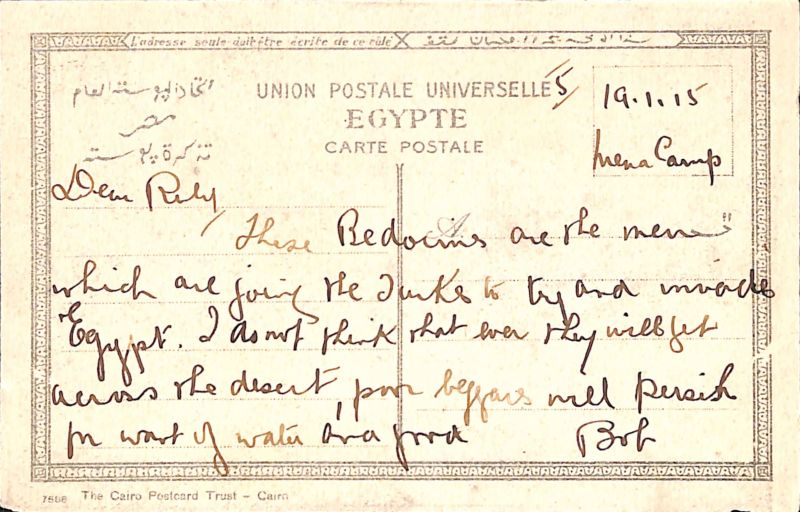 L'adresse seule doit être écrite de ce côté
اتحاد البوستة العام
مصر
تذكرة بوسته
UNION POSTALE UNIVERSELLE
EGYPTE
CARTE POSTALE
5
19.1.15
Mena Camp
Dear Ruby
These Bedouins are the men
which are joing the Turkes to try and invade
Egypt. I do not think that ever they will get
across the desert, poor beggars will perish
for want of water and food
Bob
7588 The Cairo Postcard Trust - Cairo